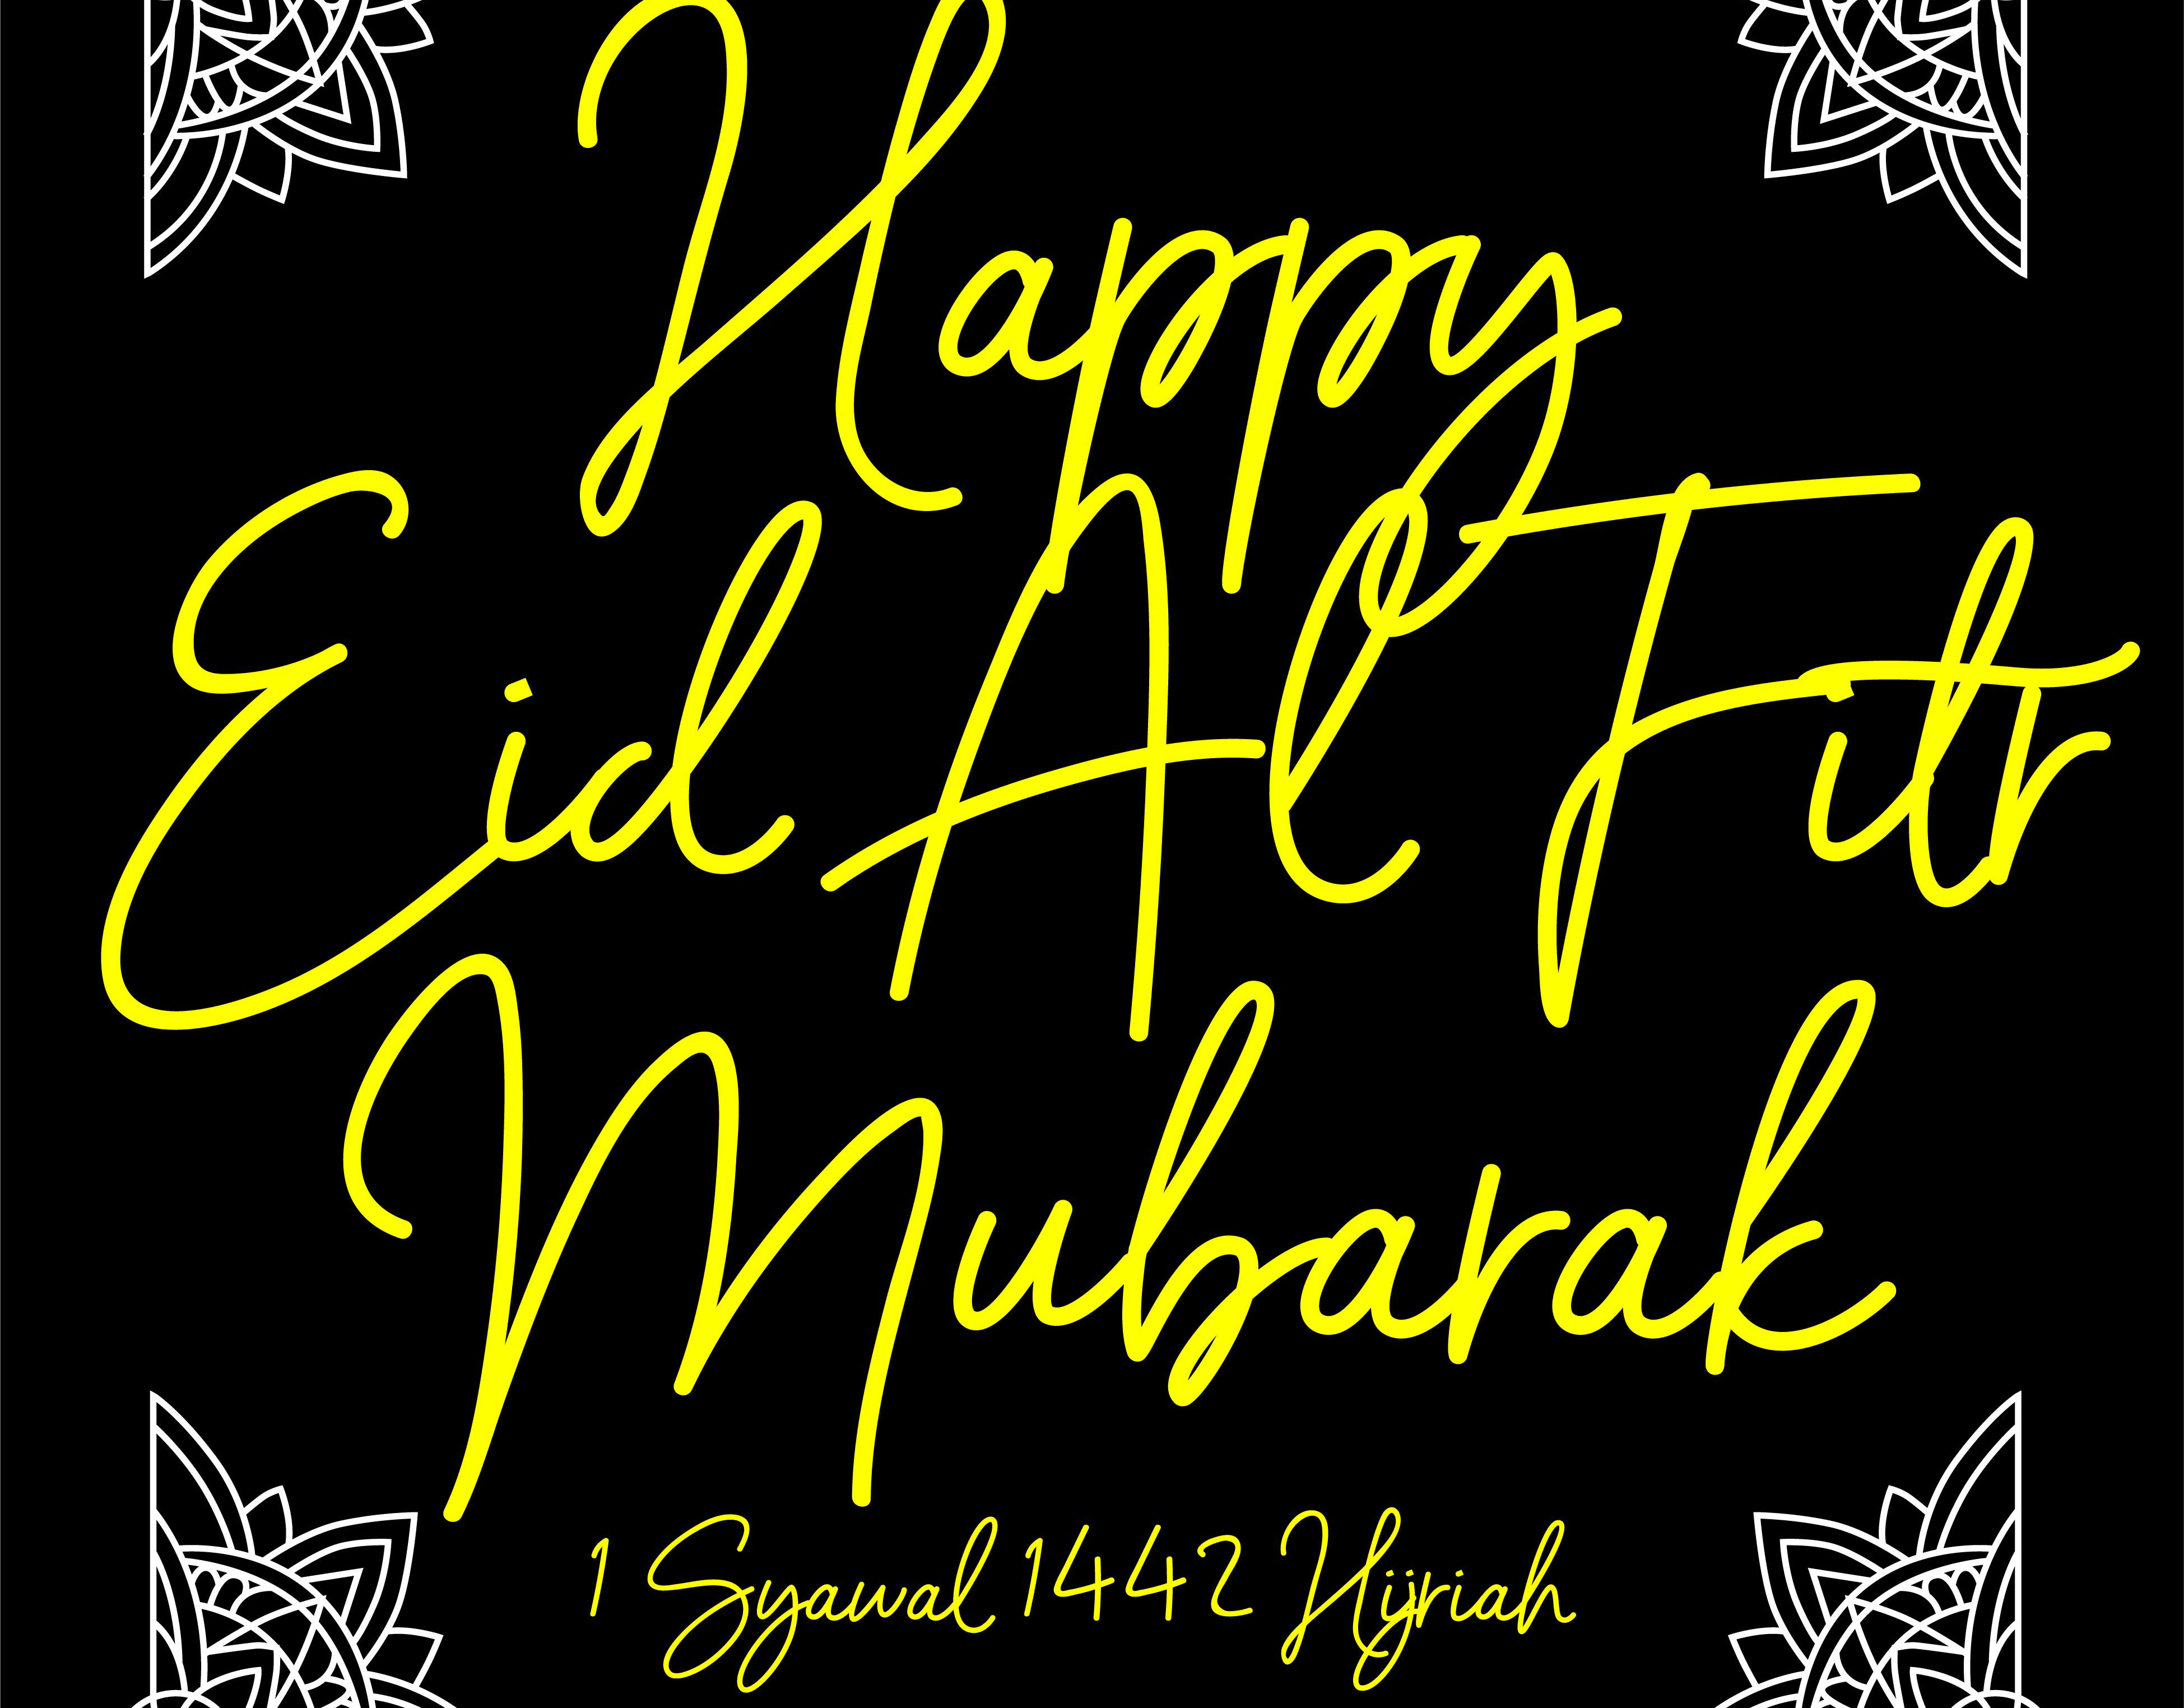 Happy
Eid Al Fitr
Mubarak
1 Syawal 1442 Hijriah